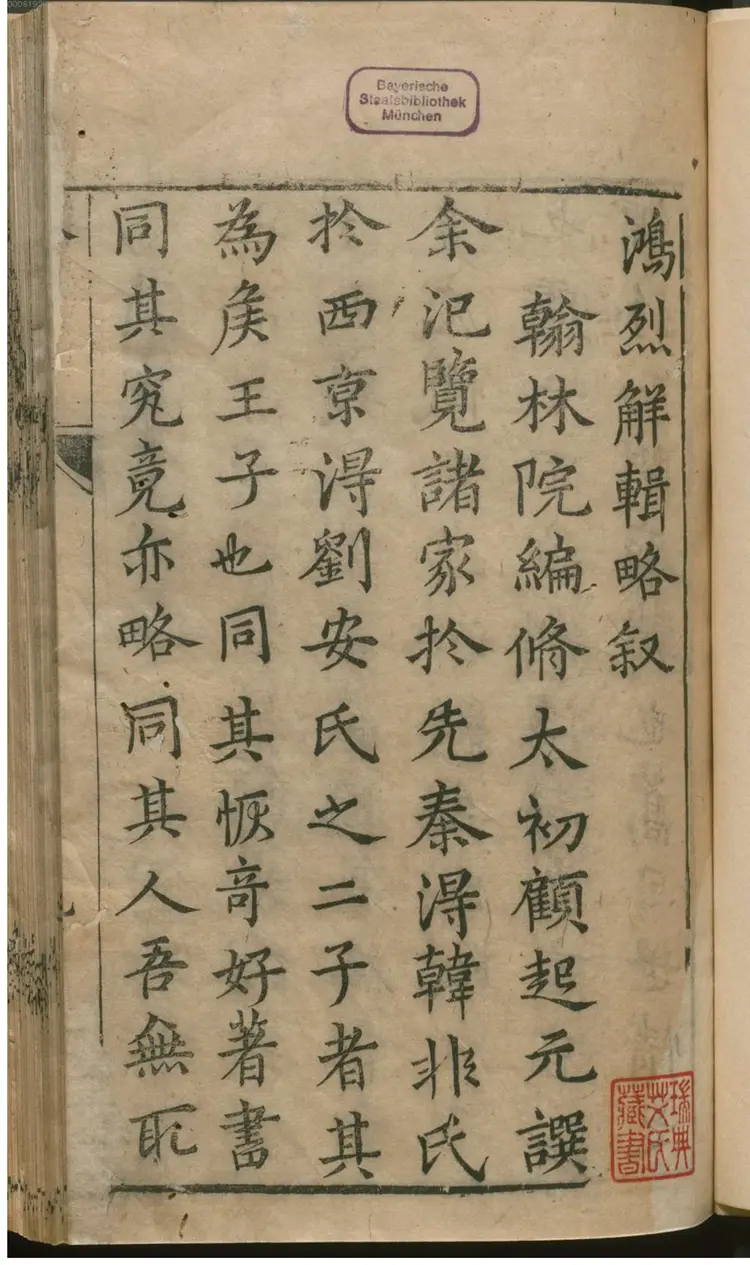 Bayerische
Staatsbibliothek
München
鴻烈解輯略叙
翰林院編脩太初顧起元譔
余氾覽諸家扵先秦淂韓非氏
扵西京淂劉安氏之二子者其
為矦王子也同其恢竒好著書
同其究竟亦略同其人吾無取
瑞典
艾氏
藏書